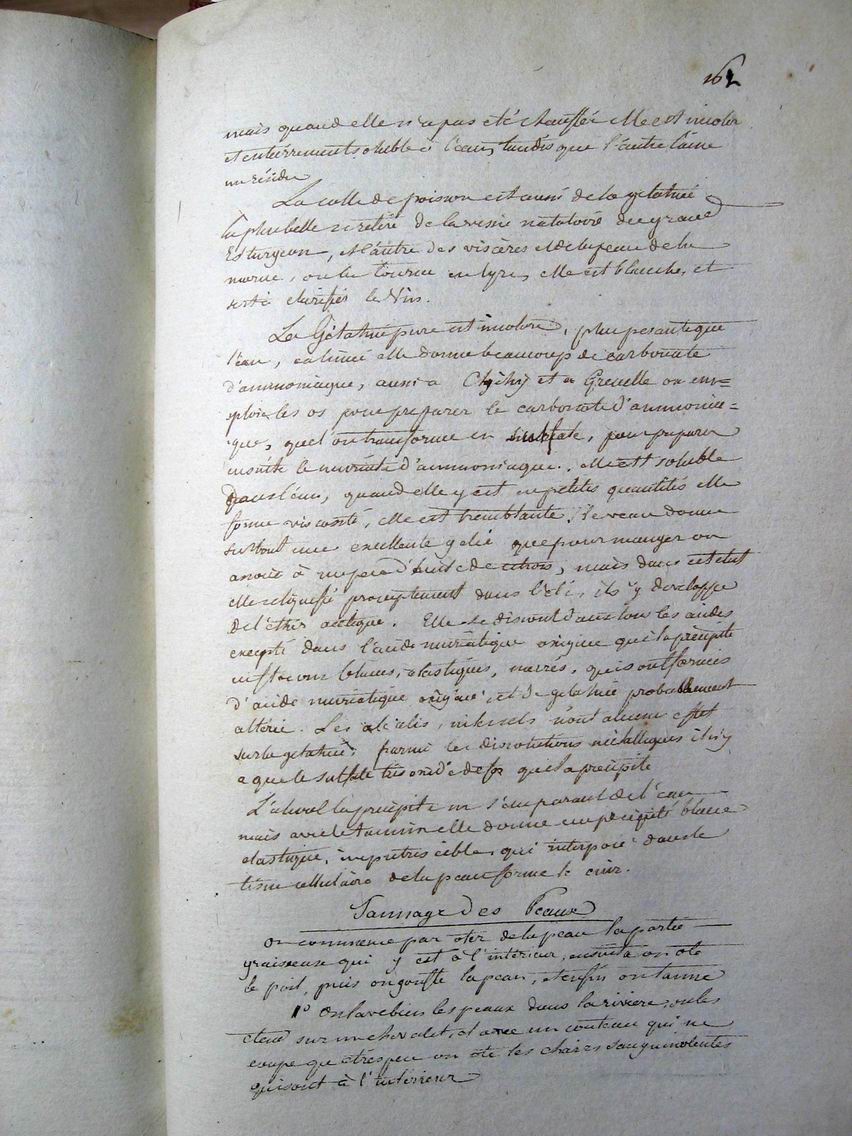 162
mais quand elle n'a pas été chauffée elle est incolor
et entièrement soluble à l'eau, tandis que l'autre laisse
un résidu
La colle de poisson est aussi de la gelatine
la plus belle se retire de la vessie natatoire du grand
Esturgeon, et l'autre des viscères et de la peau de la
morue, on la tourne en lyre, elle est blanche, et
sert à clarifier le Vin.
La Gélatine pure est incolore, plus pesante que
l'eau, calcinée elle donne beaucoup de carbonate
d'ammoniaque, aussi a Clichy et a Grenelle on em=
ploie les os pour preparer le carbonate d'ammonia=
que, que l'on transforme en sulfate, pour preparer
ensuite le muriate d'ammoniaque. elle est soluble
dans l'eau, quand elle y est en petites quantités elle
forme viscosité, elle est tremblante, le veau donne
surtout une excellente gelée que pour manger on
associe à un peu de citron, mais dans cet état
elle se liquéfie promptement dans l'été, il s'y developpe
de l'éther acétique. Elle se dissout dans tous les acides
excepté dans l'acide muriatique oxigéné qui la précipite
en flocons blancs, elastiques, nacrés, qui sont formés
d'acide muriatique oxigéné et de gelatine probablement
altérée. Les alcalis, ni les sels n'ont aucun effet
sur la gelatine; parmi les dissolutions métalliques il n'y
a que le sulfate très oxidé de fer qui la précipite
L'alcool la précipite en s'emparant de l'eau
mais avec le tannin elle donne un précipité blanc
elastique, imputrescible, qui interposé dans le
tissu cellulaire de la peau forme le cuir.
Tannage des Peaux
on commence par oter de la peau la partie
graisseuse qui y est à l'intérieur, ensuite on ote
le poil, puis on gonfle la peau, et enfin on tanne
1° On lave bien les peaux dans la riviere, on les
etend sur un chevalet, et avec un couteau qui ne
coupe que tres peu on ote les chaires sanguinolentes
qui sont à l'intérieur